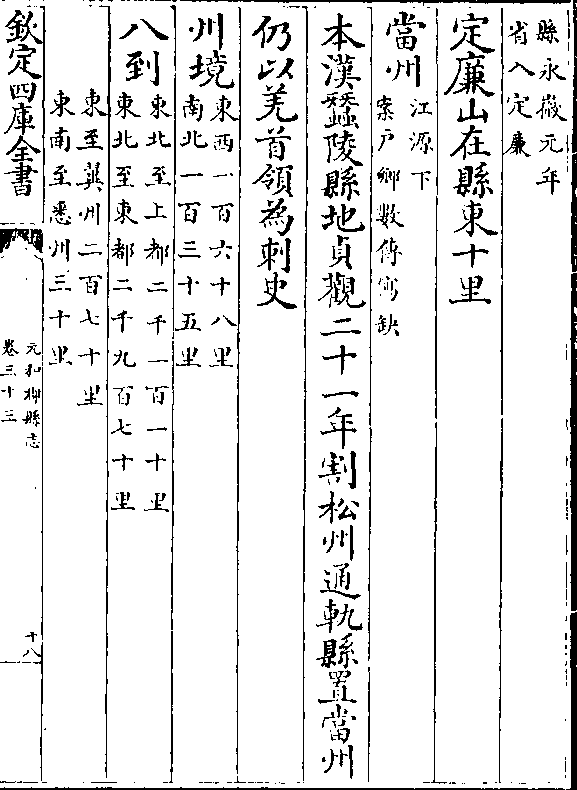 縣永徽元年
省入定廉
定廉山在縣東十里
當州
江源下
案戶鄉數傳寫缺
本漢蠶陵縣地貞觀二十一年割松州通軌縣置當州
仍以羌首領為刺史
州境
東西一百六十八里
南北一百三十五里
八到
東北至上都二千一百一十里
東北至東都二千九百七十里
東至冀州二百七十里
東南至悉州三十里
欽定四庫全書
元和郡縣志
卷三十三
十八